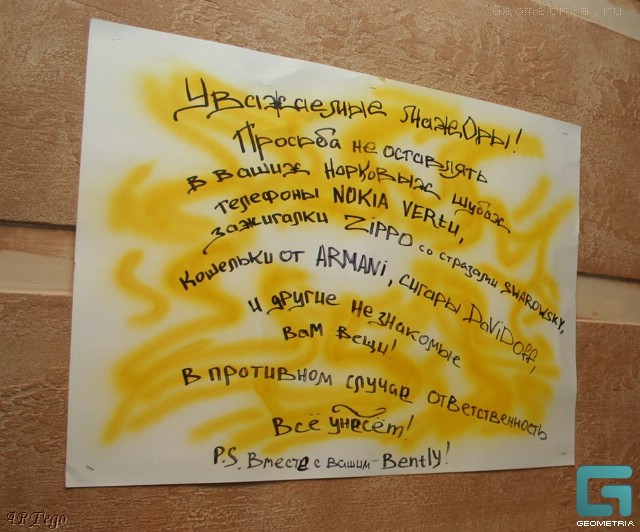 Geometria.ru
Уважаемые мажоры!
Просьба не оставлять
в вашиж норковыж шубаж
телефоны NOKIA VERtu,
зажигалки ZiPPO со стразами SWAROWSKY,
кошельки от ARMANi, сигары DaViDoff,
и другие незнакомые
вам вещи!
В противном случае ответственность
Всё унесёт!
P.S. Вместе с вашим - Bently!
ARTego
GEOMETRIA